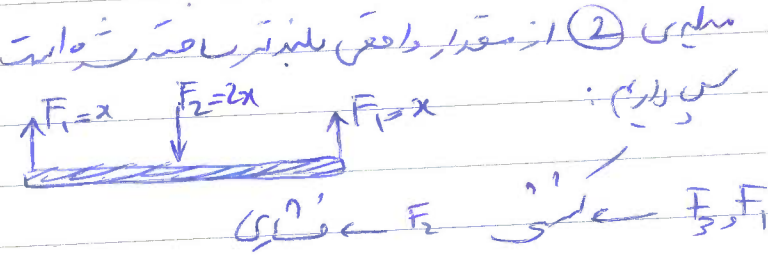 میله‌ی ② از مقدار واقعی بلندتر ساخته شده است
پس داریم :
F₁=x F₂=2x F₁=x
F₁ و F₃ ← کششی F₂ ← فشاری